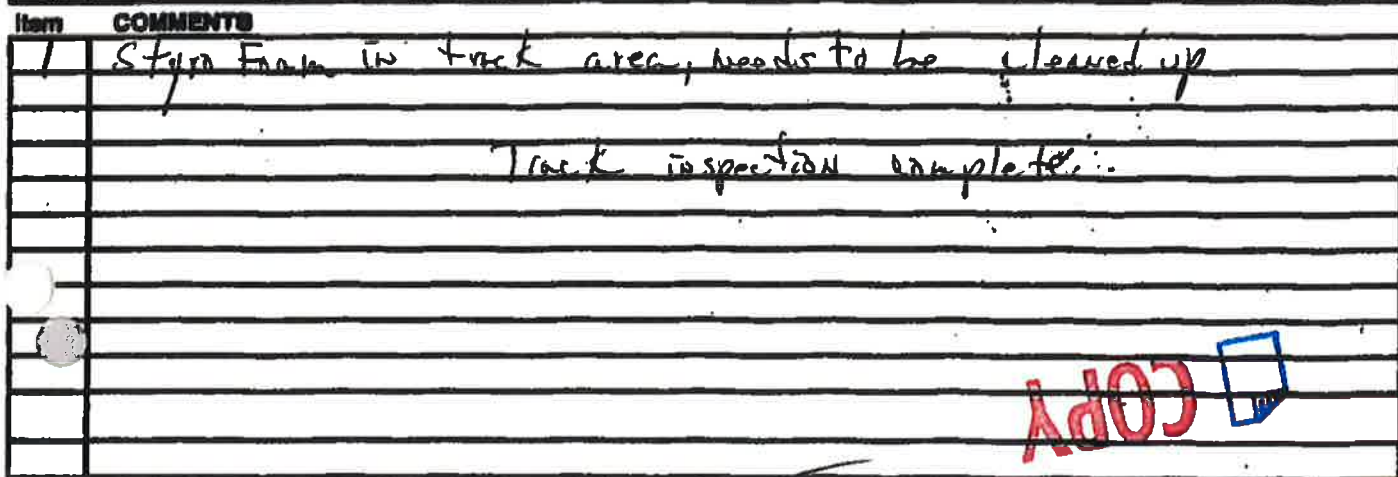 Item COMMENTS
1 Styro Foam in track area, needs to be cleaned up
Track inspection complete.
COPY